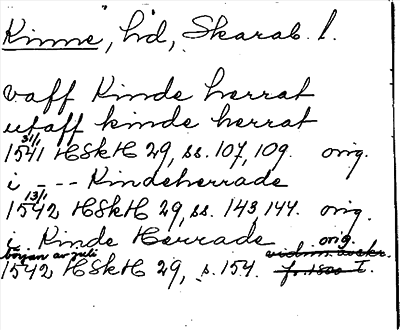 Kinne, hd, Skarab. l.
vaff Kinde herrat
utaff kinde herrat
1541 31/1 HSkH 29, ss. 107, 109. orig.
i - - - Kindeherrade
1542 13/1 HSkH 29, ss. 143, 144. orig.
i - Kinde Herrade orig.
början av juli vidim. avskr.
1542 HSkH 29, s. 154. fr. 1800-t.